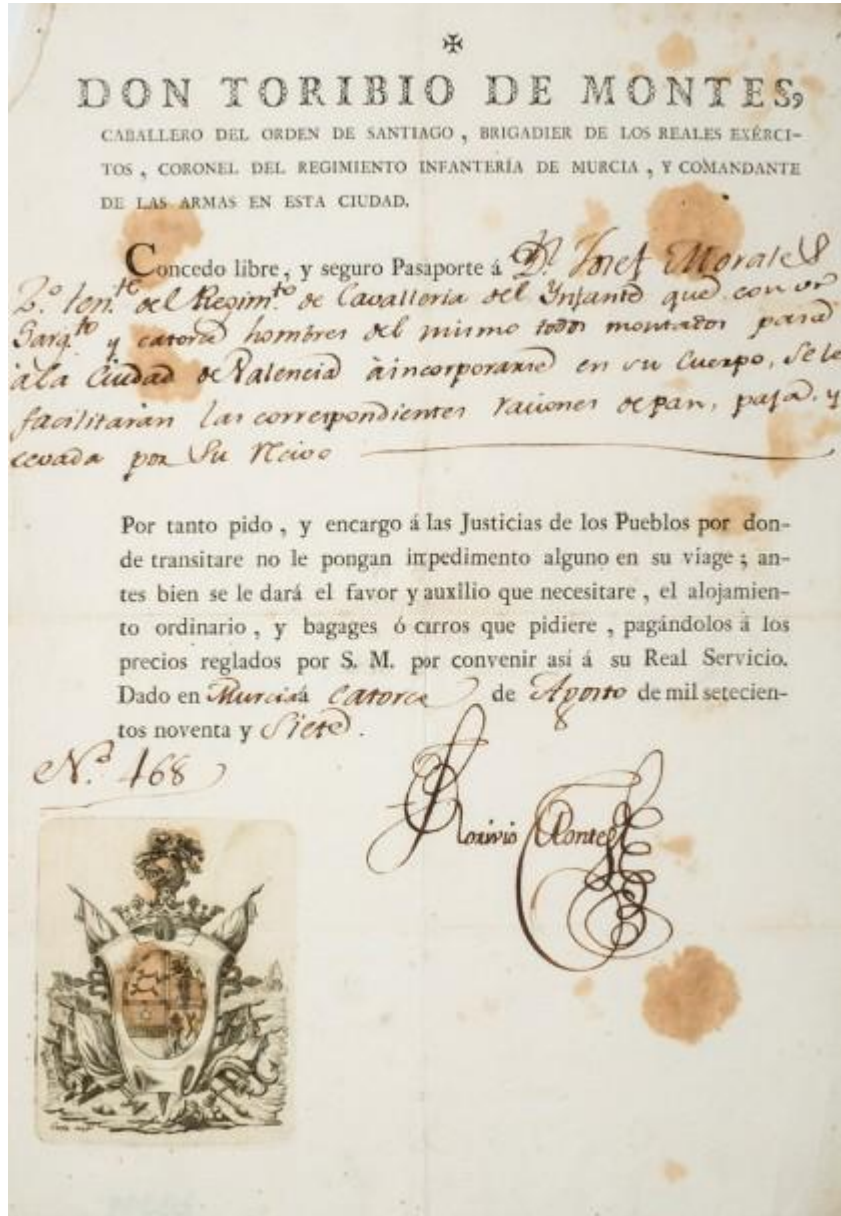 ✠
DON TORIBIO DE MONTES,
CABALLERO DEL ORDEN DE SANTIAGO , BRIGADIER DE LOS REALES EXÉRCI-
TOS , CORONEL DEL REGIMIENTO INFANTERÍA DE MURCIA , Y COMANDANTE
DE LAS ARMAS EN ESTA CIUDAD.
Concedo libre, y seguro Pasaporte á D.n Josef Morales
2.º ten.te del Regim.to de Cavalleria del Infante que con un
Sarg.to y catorce hombres del mismo todos montados pasa
à la Ciudad de Valencia à incorporarse en su Cuerpo, se le
facilitarán las correspondientes raciones de pan, paja, y
cevada por su Recivo
Por tanto pido , y encargo á las Justicias de los Pueblos por don-
de transitare no le pongan impedimento alguno en su viage ; an-
tes bien se le dará el favor y auxilio que necesitare , el alojamien-
to ordinario , y bagages ó carros que pidiere , pagándolos á los
precios reglados por S. M. por convenir así á su Real Servicio.
Dado en Murcia á Catorce de Agosto de mil setecien-
tos noventa y Siete.
N.º 168
Torivio Montes